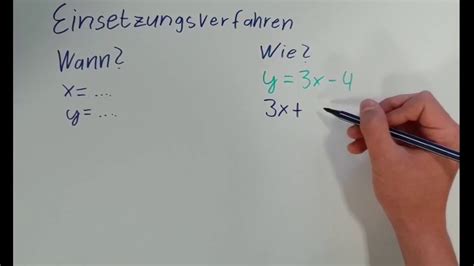 Einsetzungsverfahren
Wann?
x= ....
y= ....
Wie?
y=3x-4
3x+